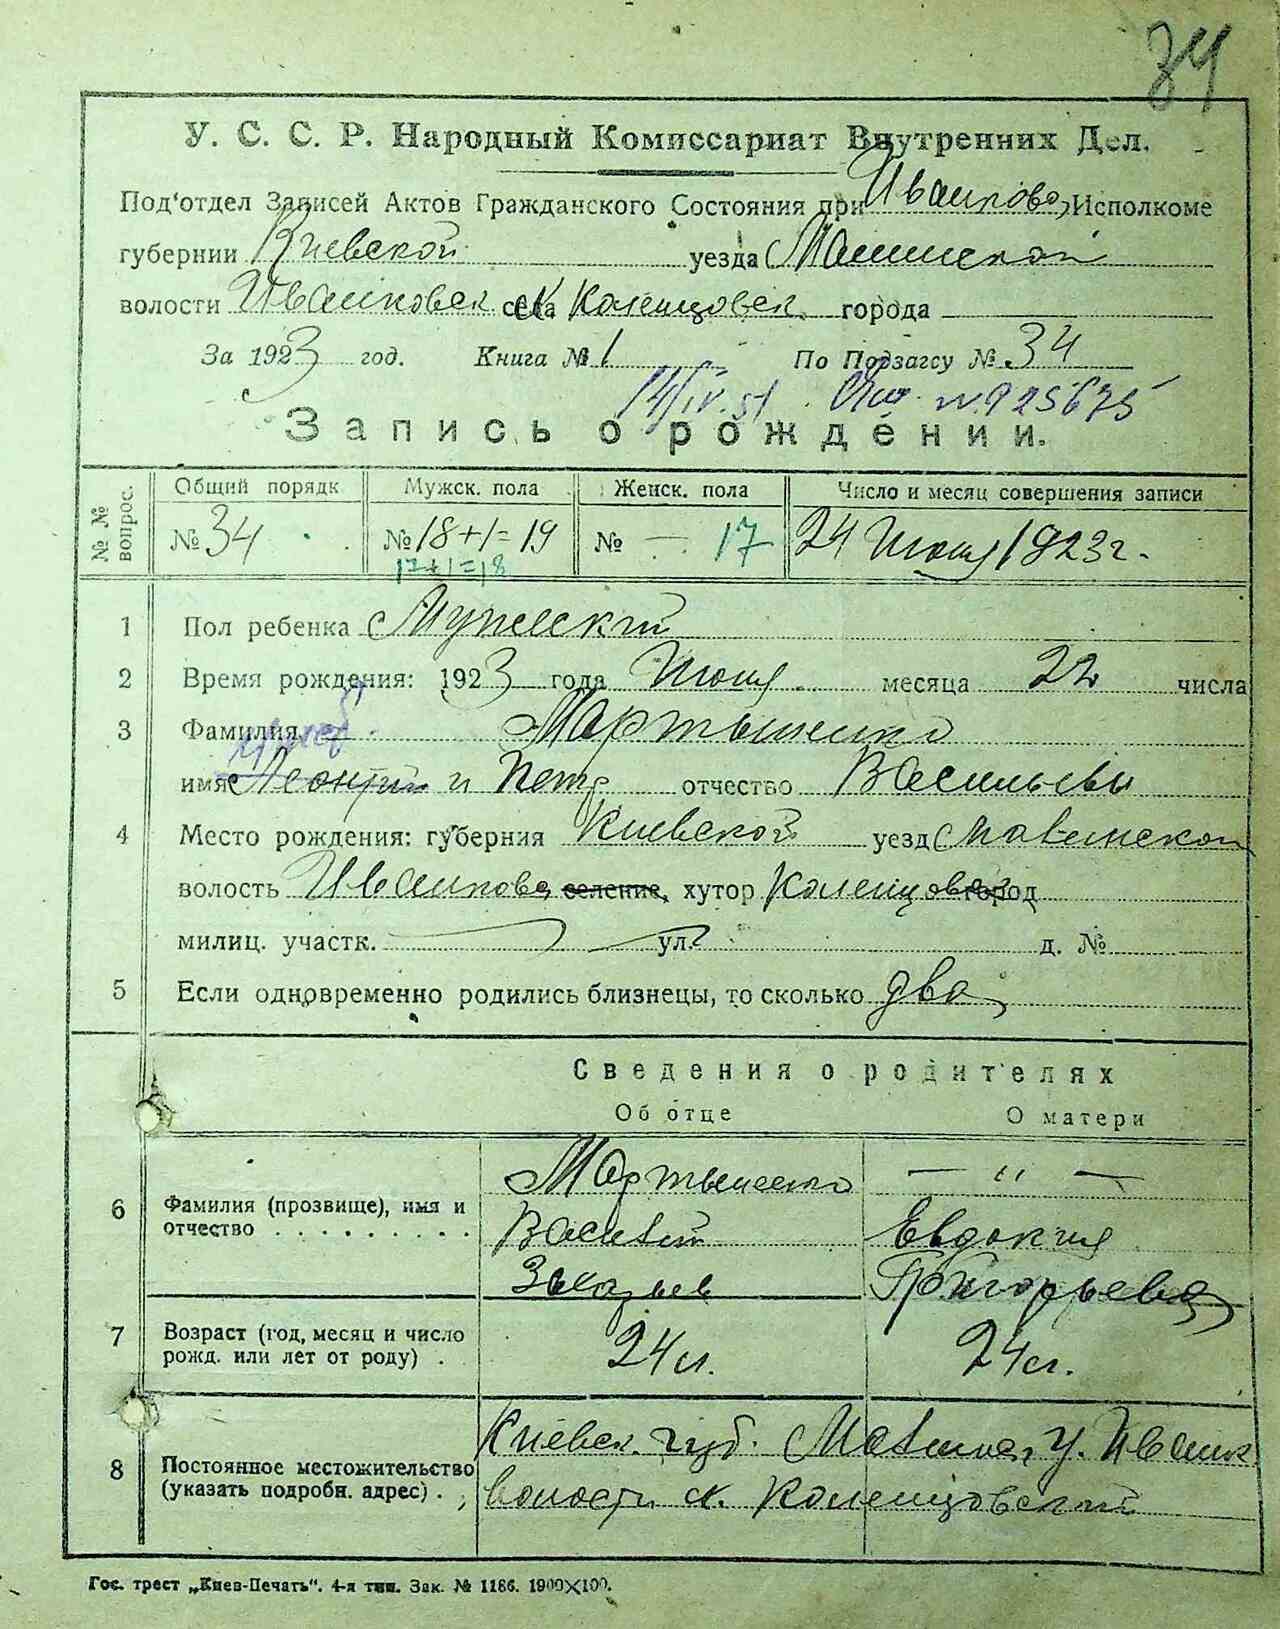 34
У. С. С. Р. Народный Комиссариат Внутренних Дел.
Под'отдел Записей Актов Гражданского Состояния при Иванково, Исполкоме
губернии Киевской уезда
волости Ивановск села Коленцовск. города
За 1923 год. Книга № 1 По Подзагсу № 34
14/IV.51 №925675
Запись о рождении.
№№ вопрос. Общий порядк Мужск. пола Женск. пола Число и месяц совершения записи
№ 34 № 18+1=19 № — 17 24 Июня 1923 г.
17+1=18
1 Пол ребенка Мужеский
2 Время рождения: 1923 года Июня месяца 22 числа
3 Фамилия Мартыненко
имя Леонтий и Петр отчество Васильевы
4 Место рождения: губерния Киевской уезд
волость Иванково селение, хутор Коленцовск город
милиц. участк. ул. д. №
5 Если одновременно родились близнецы, то сколько два
Сведения о родителях
Об отце О матери
6 Фамилия (прозвище), имя и отчество Мартыненко — „ —
Василий Евдокия
Григорьева
7 Возраст (год, месяц и число рожд. или лет от роду) . 24 л. 24 л.
8 Постоянное местожительство (указать подробн. адрес) . Киевск. губ. у. Иванк
волости х. Коленцовский
Гос. трест „Киев-Печать". 4-я тип. Зак. № 1186. 1900×100.